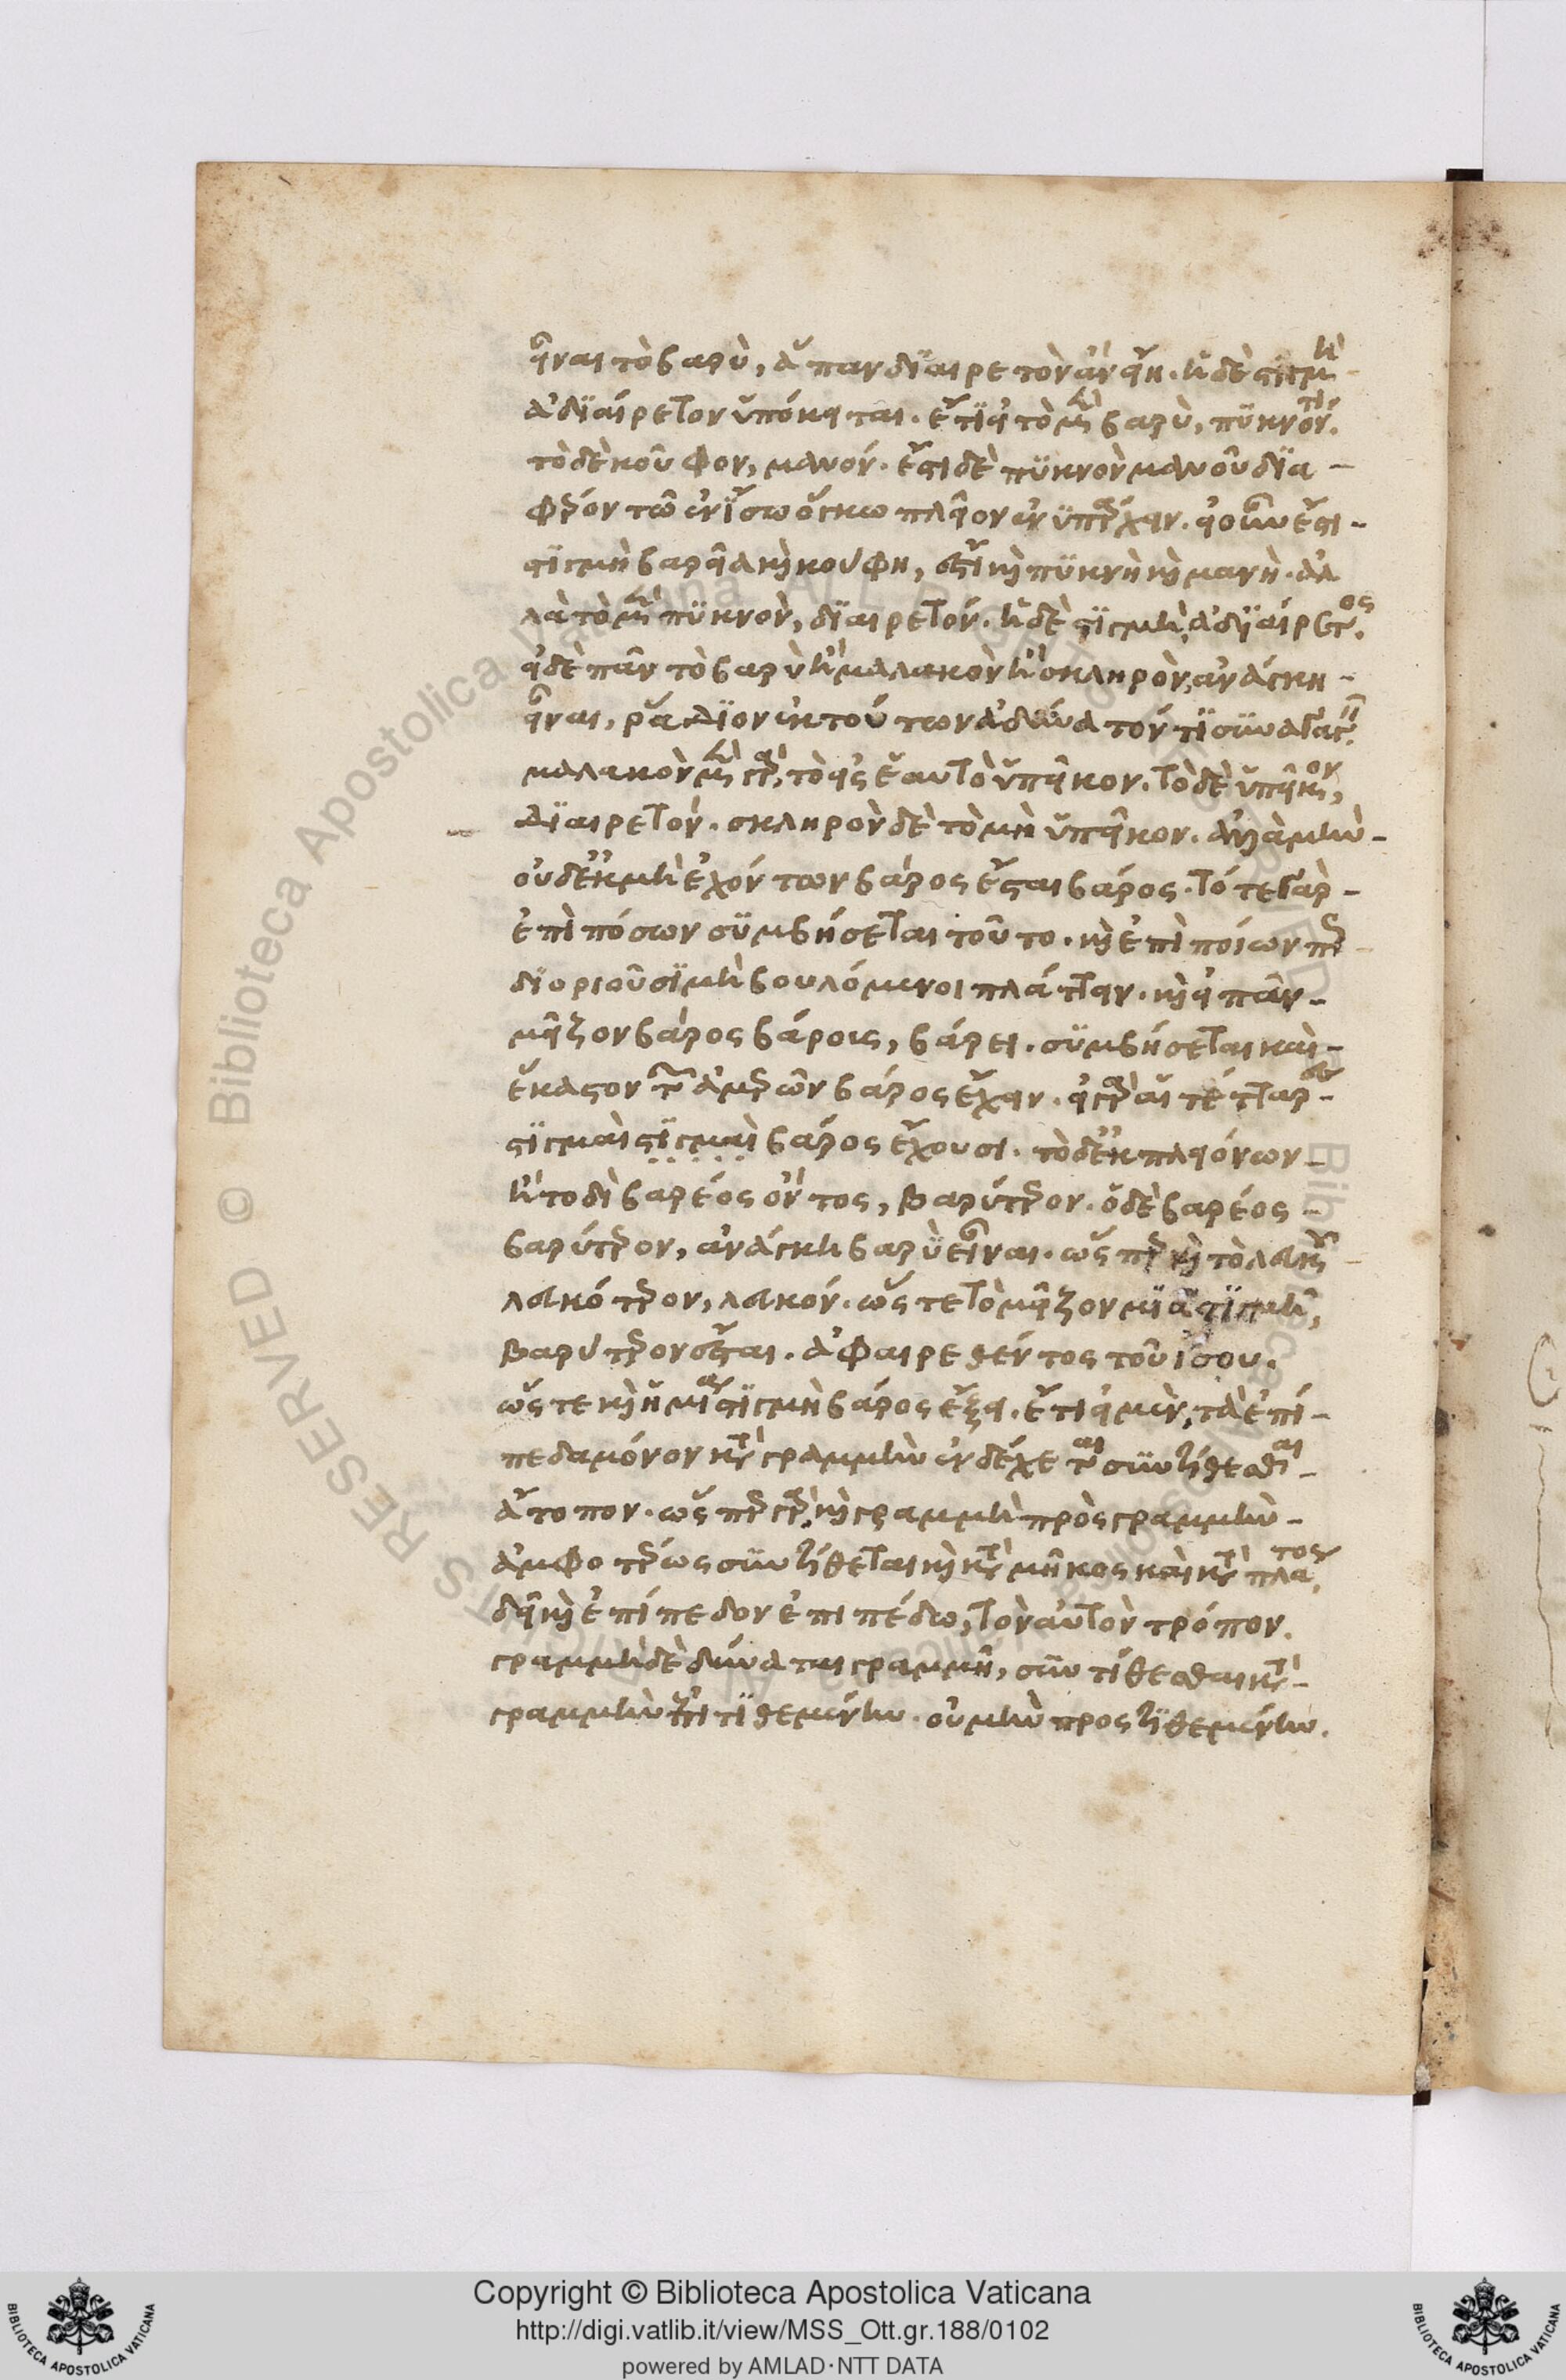 εἶναι τὸ βαρὺ, ἅπαν διαιρετὸν ἂν εἴη. ἡ δὲ στιγμὴ
ἀδιαίρετον ὑπόκειται. ἔτι εἰ τὸ μὲν βαρὺ, πυκνόν τι.
τὸ δὲ κοῦφον, μανόν. ἔστι δὲ πυκνὸν μανοῦ δια-
φέρον τῶ ἐν ἴσω ὄγκω πλεῖον ἐνυπάρχειν. εἰ οὖν ἔστι
στιγμὴ βαρεῖα καὶ κούφη, ἔστι καὶ πυκνὴ καὶ μανή. ἀλ
λὰ τὸ μὲν πυκνὸν, διαιρετόν. ἡ δὲ στιγμὴ, ἀδιαίρετος.
εἰ δὲ πᾶν τὸ βαρὺ ἢ μαλακὸν ἢ σκληρὸν, ἀνάγκη
εἶναι, ῥάδιον ἐκ τούτων ἀδύνατόν τι συναγαγεῖν.
μαλακὸν μὲν γὰρ, τὸ εἰς ἑαυτὸ ὑπεῖκον. τὸ δὲ ὑπεῖκον,
διαιρετόν. σκληρὸν δὲ τὸ μὴ ὑπεῖκον. ἀλλὰ μὴν
οὐδ' ἐκ μὴ ἐχόντων βάρος ἔσται βάρος. τό τε γὰρ
ἐπὶ πόσων συμβήσεται τοῦτο. καὶ ἐπὶ ποίων πῶς
διοριοῦσι μὴ βουλόμενοι πλάττειν. καὶ εἰ πᾶν
μεῖζον βάρος βάροις, βάρει. συμβήσεται καὶ
ἕκαστον τῶν ἀμερῶν βάρος ἔχειν. εἰ γὰρ αἱ τέτταρες
στιγμαὶ στιγμαὶ βάρος ἔχουσι. τὸ δ' ἐκ πλειόνων
ἢ τοδὶ βαρέος ὄντος, βαρύτερον. ὃ δὲ βαρέος
βαρύτερον, ἀνάγκη βαρὺ εἶναι. ὥσπερ καὶ τὸ λευκοῦ
λευκότερον, λευκόν. ὥστε τὸ μεῖζον μιᾶ στιγμῆ,
βαρύτερον ἔσται. ἀφαιρεθέντος τοῦ ἴσου.
ὥστε καὶ ἡ μία στιγμὴ βάρος ἕξει. ἔτι εἰ μὲν, τὰ ἐπί-
πεδα μόνον κατὰ γραμμὴν ἐνδέχεται συντίθεσθαι
ἄτοπον. ὥσπερ γὰρ, καὶ γραμμὴ πρὸς γραμμὴν
ἀμφοτέρως συντίθεται καὶ κατὰ μῆκος καὶ κατὰ πλάτος,
δεῖ καὶ ἐπίπεδον ἐπιπέδω, τὸν αὐτὸν τρόπον.
γραμμὴ δὲ δύναται γραμμῆ, συντίθεσθαι κατὰ
γραμμὴν ἐπιτιθεμένην. οὐ μὴν προστιθεμένην.